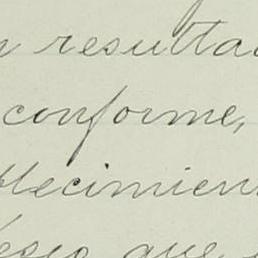 n resulta
conforme,
blecimien
que